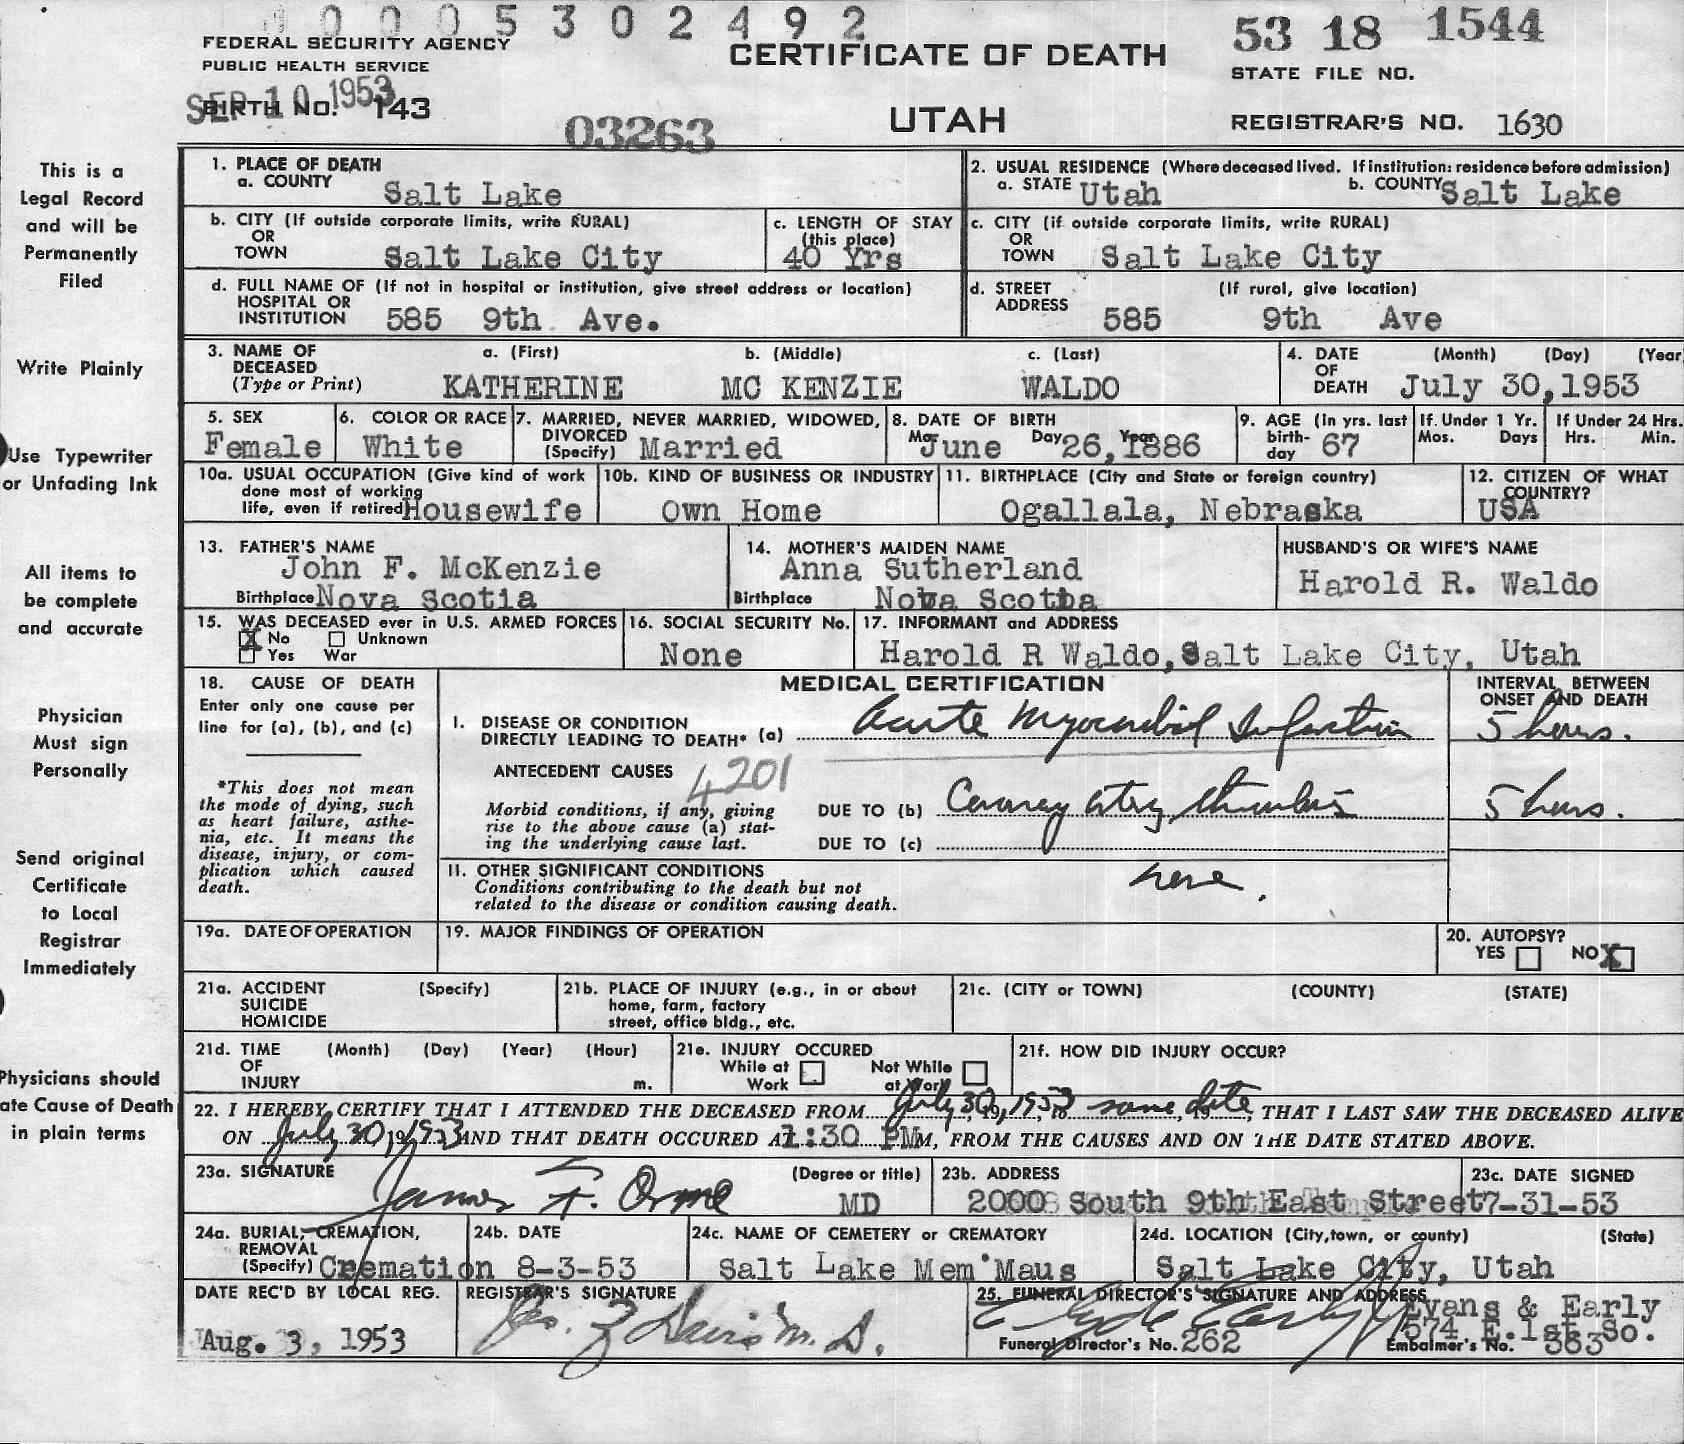 0005302492
FEDERAL SECURITY AGENCY
PUBLIC HEALTH SERVICE
CERTIFICATE OF DEATH
53 18 1544
STATE FILE NO.
SEP 10 1953
BIRTH NO. 143
03263
UTAH
REGISTRAR'S NO. 1630
This is a
Legal Record
and will be
Permanently
Filed
Write Plainly
Use Typewriter
or Unfading Ink
All items to
be complete
and accurate
Physician
Must sign
Personally
Send original
Certificate
to Local
Registrar
Immediately
Physicians should
ate Cause of Death
in plain terms
1. PLACE OF DEATH
a. COUNTY Salt Lake
2. USUAL RESIDENCE (Where deceased lived. If institution: residence before admission)
a. STATE Utah b. COUNTY Salt Lake
b. CITY (If outside corporate limits, write RURAL)
OR
TOWN Salt Lake City
c. LENGTH OF STAY
(this place)
40 Yrs
c. CITY (if outside corporate limits, write RURAL)
OR
TOWN Salt Lake City
d. FULL NAME OF (If not in hospital or institution, give street address or location)
HOSPITAL OR
INSTITUTION 585 9th Ave.
d. STREET (If rurol, give location)
ADDRESS 585 9th Ave
3. NAME OF a. (First) b. (Middle) c. (Last)
DECEASED
(Type or Print) KATHERINE MC KENZIE WALDO
4. DATE (Month) (Day) (Year
OF
DEATH July 30,1953
5. SEX
Female
6. COLOR OR RACE
White
7. MARRIED, NEVER MARRIED, WIDOWED,
DIVORCED
(Specify) Married
8. DATE OF BIRTH
Mo. June Day 26, Year 1886
9. AGE (In yrs. last
birth-
day 67
If Under 1 Yr.
Mos. Days
If Under 24 Hrs.
Hrs. Min.
10a. USUAL OCCUPATION (Give kind of work
done most of working
life, even if retired) Housewife
10b. KIND OF BUSINESS OR INDUSTRY
Own Home
11. BIRTHPLACE (City and State or foreign country)
Ogallala, Nebraska
12. CITIZEN OF WHAT
COUNTRY?
USA
13. FATHER'S NAME
John F. McKenzie
Birthplace Nova Scotia
14. MOTHER'S MAIDEN NAME
Anna Sutherland
Birthplace Nova Scotia
HUSBAND'S OR WIFE'S NAME
Harold R. Waldo
15. WAS DECEASED ever in U.S. ARMED FORCES
X No Unknown
Yes War
16. SOCIAL SECURITY No.
None
17. INFORMANT and ADDRESS
Harold R Waldo, Salt Lake City, Utah
18. CAUSE OF DEATH
Enter only one cause per
line for (a), (b), and (c)
*This does not mean
the mode of dying, such
as heart failure, asthe-
nia, etc. It means the
disease, injury, or com-
plication which caused
death.
MEDICAL CERTIFICATION
INTERVAL BETWEEN
ONSET AND DEATH
I. DISEASE OR CONDITION
DIRECTLY LEADING TO DEATH* (a) Acute Myocardial Infarction 5 hours.
ANTECEDENT CAUSES 4201
Morbid conditions, if any, giving
rise to the above cause (a) stat-
ing the underlying cause last.
DUE TO (b) Coronary artery thrombosis 5 hours.
DUE TO (c)
II. OTHER SIGNIFICANT CONDITIONS
Conditions contributing to the death but not
related to the disease or condition causing death.
none.
19a. DATE OF OPERATION
19. MAJOR FINDINGS OF OPERATION
20. AUTOPSY?
YES NO X
21a. ACCIDENT (Specify)
SUICIDE
HOMICIDE
21b. PLACE OF INJURY (e.g., in or about
home, farm, factory
street, office bldg., etc.
21c. (CITY or TOWN) (COUNTY) (STATE)
21d. TIME (Month) (Day) (Year) (Hour)
OF
INJURY m.
21e. INJURY OCCURED
While at Not While
Work at Work
21f. HOW DID INJURY OCCUR?
22. I HEREBY CERTIFY THAT I ATTENDED THE DECEASED FROM July 30, 19, 1953 to same date, THAT I LAST SAW THE DECEASED ALIVE
ON July 30, 19 1953 AND THAT DEATH OCCURED AT 1:30 PM M, FROM THE CAUSES AND ON THE DATE STATED ABOVE.
23a. SIGNATURE (Degree or title)
James F. Orme MD
23b. ADDRESS
2000 South 9th East Street
23c. DATE SIGNED
7-31-53
24a. BURIAL, CREMATION,
REMOVAL
(Specify) Cremation
24b. DATE
8-3-53
24c. NAME OF CEMETERY or CREMATORY
Salt Lake Mem'Maus
24d. LOCATION (City,town, or county) (State)
Salt Lake City, Utah
DATE REC'D BY LOCAL REG.
Aug. 3, 1953
REGISTRAR'S SIGNATURE
Jos. Z Davis M. D.
25. FUNERAL DIRECTOR'S SIGNATURE AND ADDRESS
Clyde Early Evans & Early
574 E.1st So.
Funeral Director's No. 262
Embalmer's No. 363